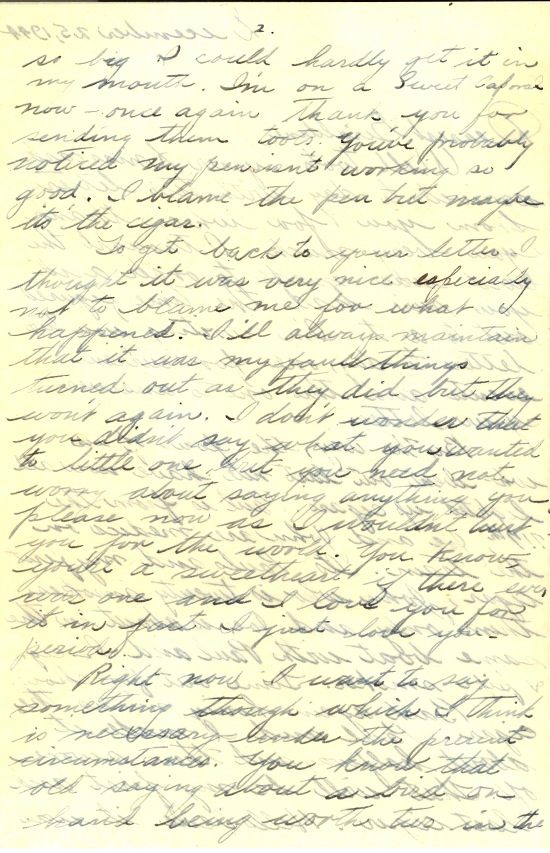 2.
so big I could hardly get it in
my mouth. I'm on a Sweet Caporal
now - once again thank you for
sending them toots. You've probably
noticed my pen isn't working so
good. I blame the pen but maybe
its the cigar.
To get back to your letter I
thought it was very nice especially
not to blame me for what
happened. I'll always maintain
that it was my fault things
turned out as they did but they
won't again. I don't wonder that
you didn't say what you wanted
to little one but you need not
worry about saying anything you
please now as I wouldn't hurt
you for the world. You know
you're a sweetheart if there ever
was one and I love you for
it in fact I just love you -
period.
Right now I want to say
something though which I think
is necessary under the present
circumstances. You know that
old saying about a bird on
hand being worth two in the